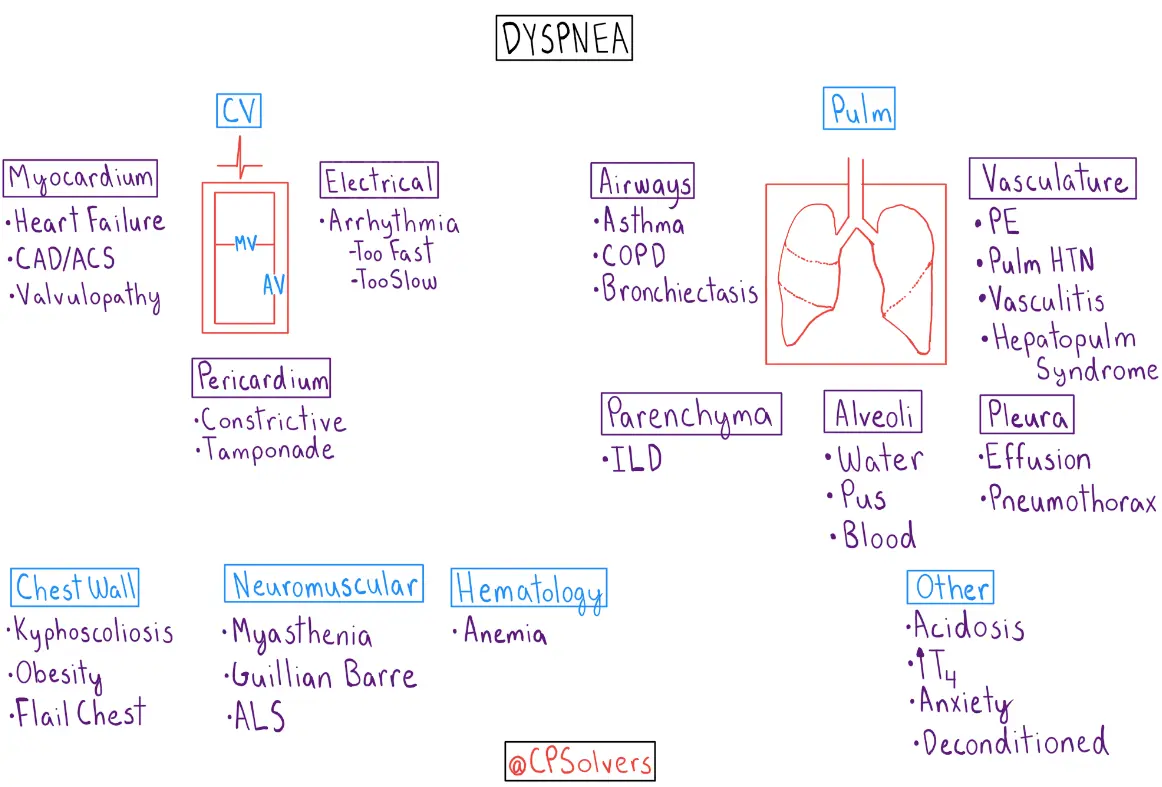 DYSPNEA
CV
Myocardium
•Heart Failure
•CAD/ACS
•Valvulopathy
MV
AV
Electrical
•Arrhythmia
-Too Fast
-Too Slow
Pericardium
•Constrictive
•Tamponade
Pulm
Airways
•Asthma
•COPD
•Bronchiectasis
Vasculature
•PE
•Pulm HTN
•Vasculitis
•Hepatopulm
Syndrome
Parenchyma
•ILD
Alveoli
•Water
•Pus
•Blood
Pleura
•Effusion
•Pneumothorax
Chest Wall
•Kyphoscoliosis
•Obesity
•Flail Chest
Neuromuscular
•Myasthenia
•Guillian Barre
•ALS
Hematology
•Anemia
Other
•Acidosis
•↑T4
•Anxiety
•Deconditioned
@CPSolvers